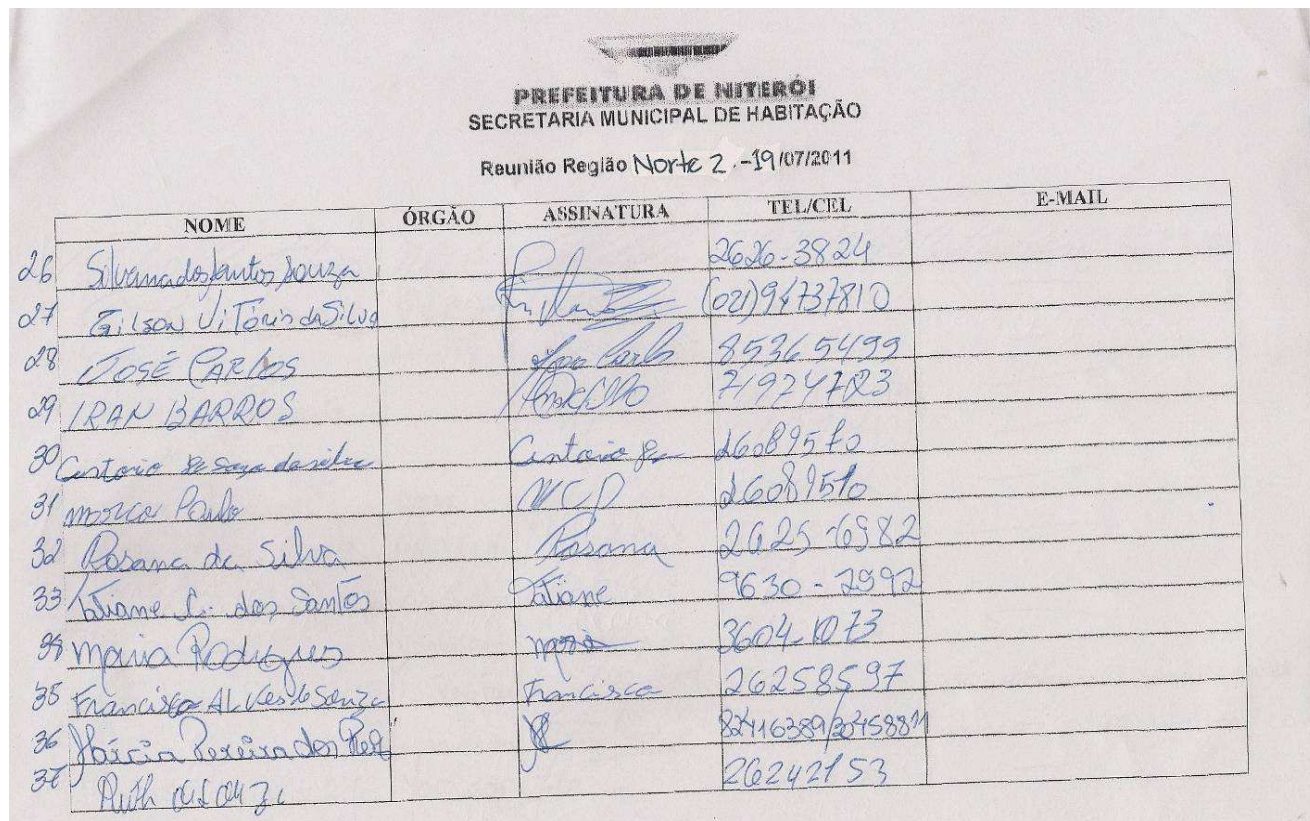 PREFEITURA DE NITERÓI
SECRETARIA MUNICIPAL DE HABITAÇÃO
Reunião Região Norte 2 - 19/07/2011
NOME ÓRGÃO ASSINATURA TEL/CEL E-MAIL
26 Silvana dos Santos Souza 2626-3824
27 Gilson Vitório da Silva (021)94737810
28 JOSÉ CARLOS José Carlos 85365499
29 IRAN BARROS 71974723
30 da silva 26089570
31 Paulo MCP 26089570
32 Rosana da Silva Rosana 2625-6982
33 Tatiane C. dos Santos Tatiane 9630-2992
34 Maria Rodrigues Maria 3604-1073
35 Francisca Alves de Souza Francisca 26258597
36 Márcia Pereira dos Reis 82416389/
37 Ruth 26242153